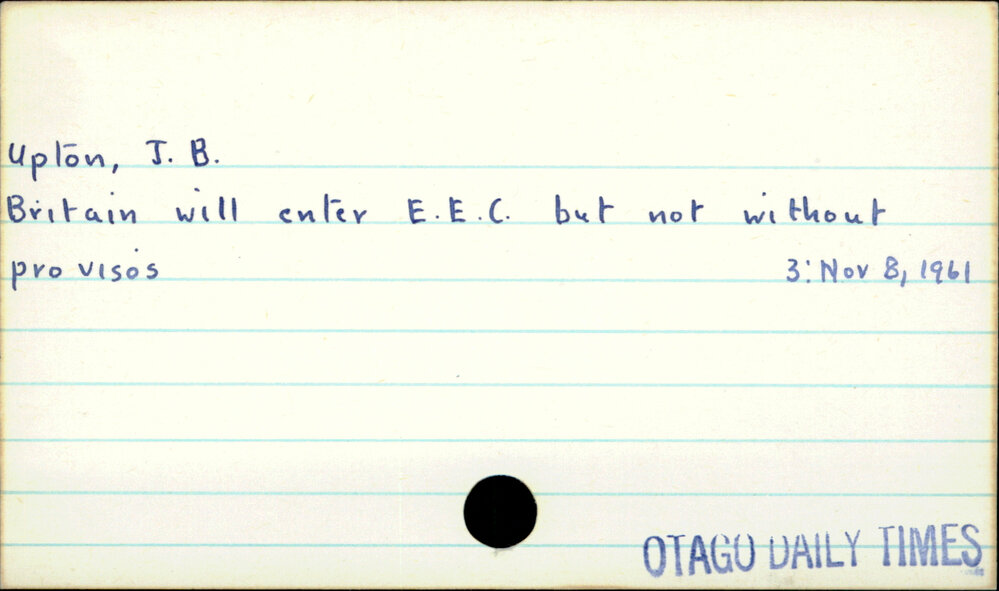 Upton, J. B.
Britain will enter E.E.C. but not without
provisos 3: Nov 8, 1961
OTAGO DAILY TIMES